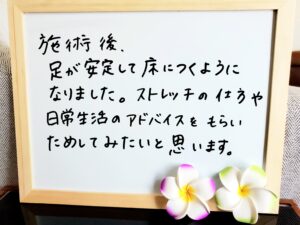 施術後、
足が安定して床につくように
なりました。ストレッチの仕方や
日常生活のアドバイスをもらい
ためしてみたいと思います。